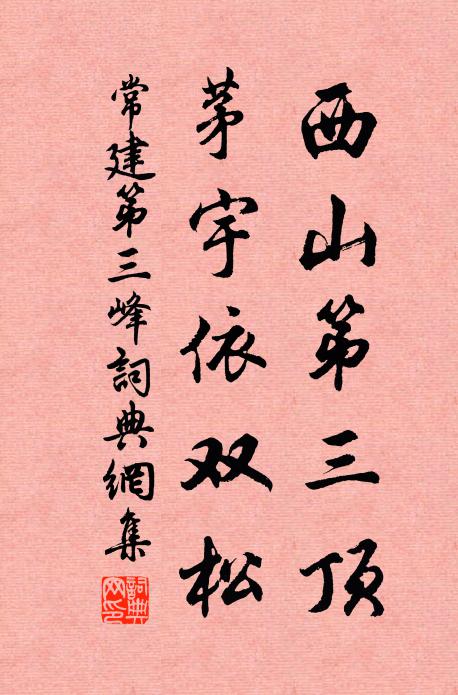 西山第三顶
茅宇依双松
常建第三峰詞典網集
詞典网印